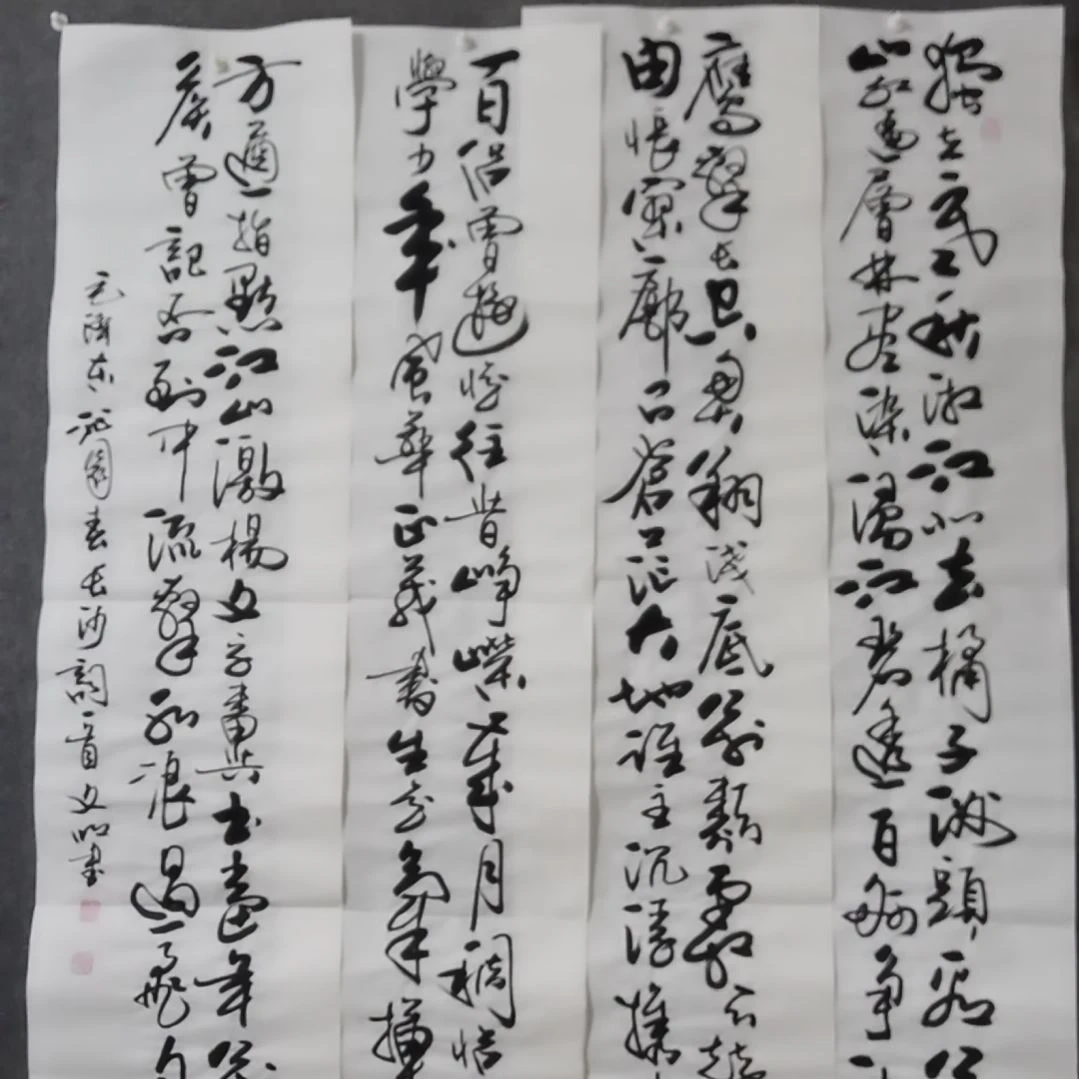 獨立寒秋湘江北去橘子洲頭看
山紅遍層林盡染漫江碧透百舸争
鷹擊長空魚翔淺底萬類霜天競
由悵寥廓问蒼茫大地誰主沉浮攜
百侣曾遊憶往昔崢嶸歲月稠恰
學少年風華正茂書生意氣揮
方遒指點江山激揚文字糞土當年萬
侯曾記否到中流擊水浪遏飛
毛澤東沁園春長沙詞一首文书